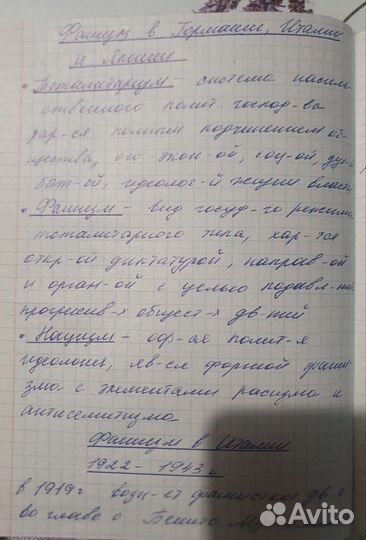 Фашизм в Германии, Италии
и Японии
• Тоталитаризм – система насиль-
ственного полит. господ-ва
хар-ся полным подчинением об-
щества, его экон-ой, соц-ой,
идеолог-й жизни власти
• Фашизм – вид госуд-го режима
тоталитарного типа, хар-тся
откр-ой диктатурой, направ-ой
и орган-ой с целью подавл-ния
прогрессив-х общест-х дв-ний
• Нацизм – оф-ая полит-я
идеология, яв-ся формой фаши-
зма с элементами расизма и
антисемитизма
Фашизм в Италии
1922 – 1943 г
в 1919 г возн-ет дв-е
во главе с Бенито
Avito